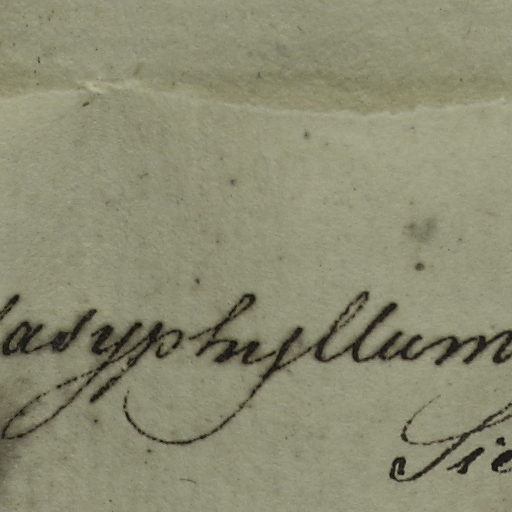 dasyphyllum
Sie